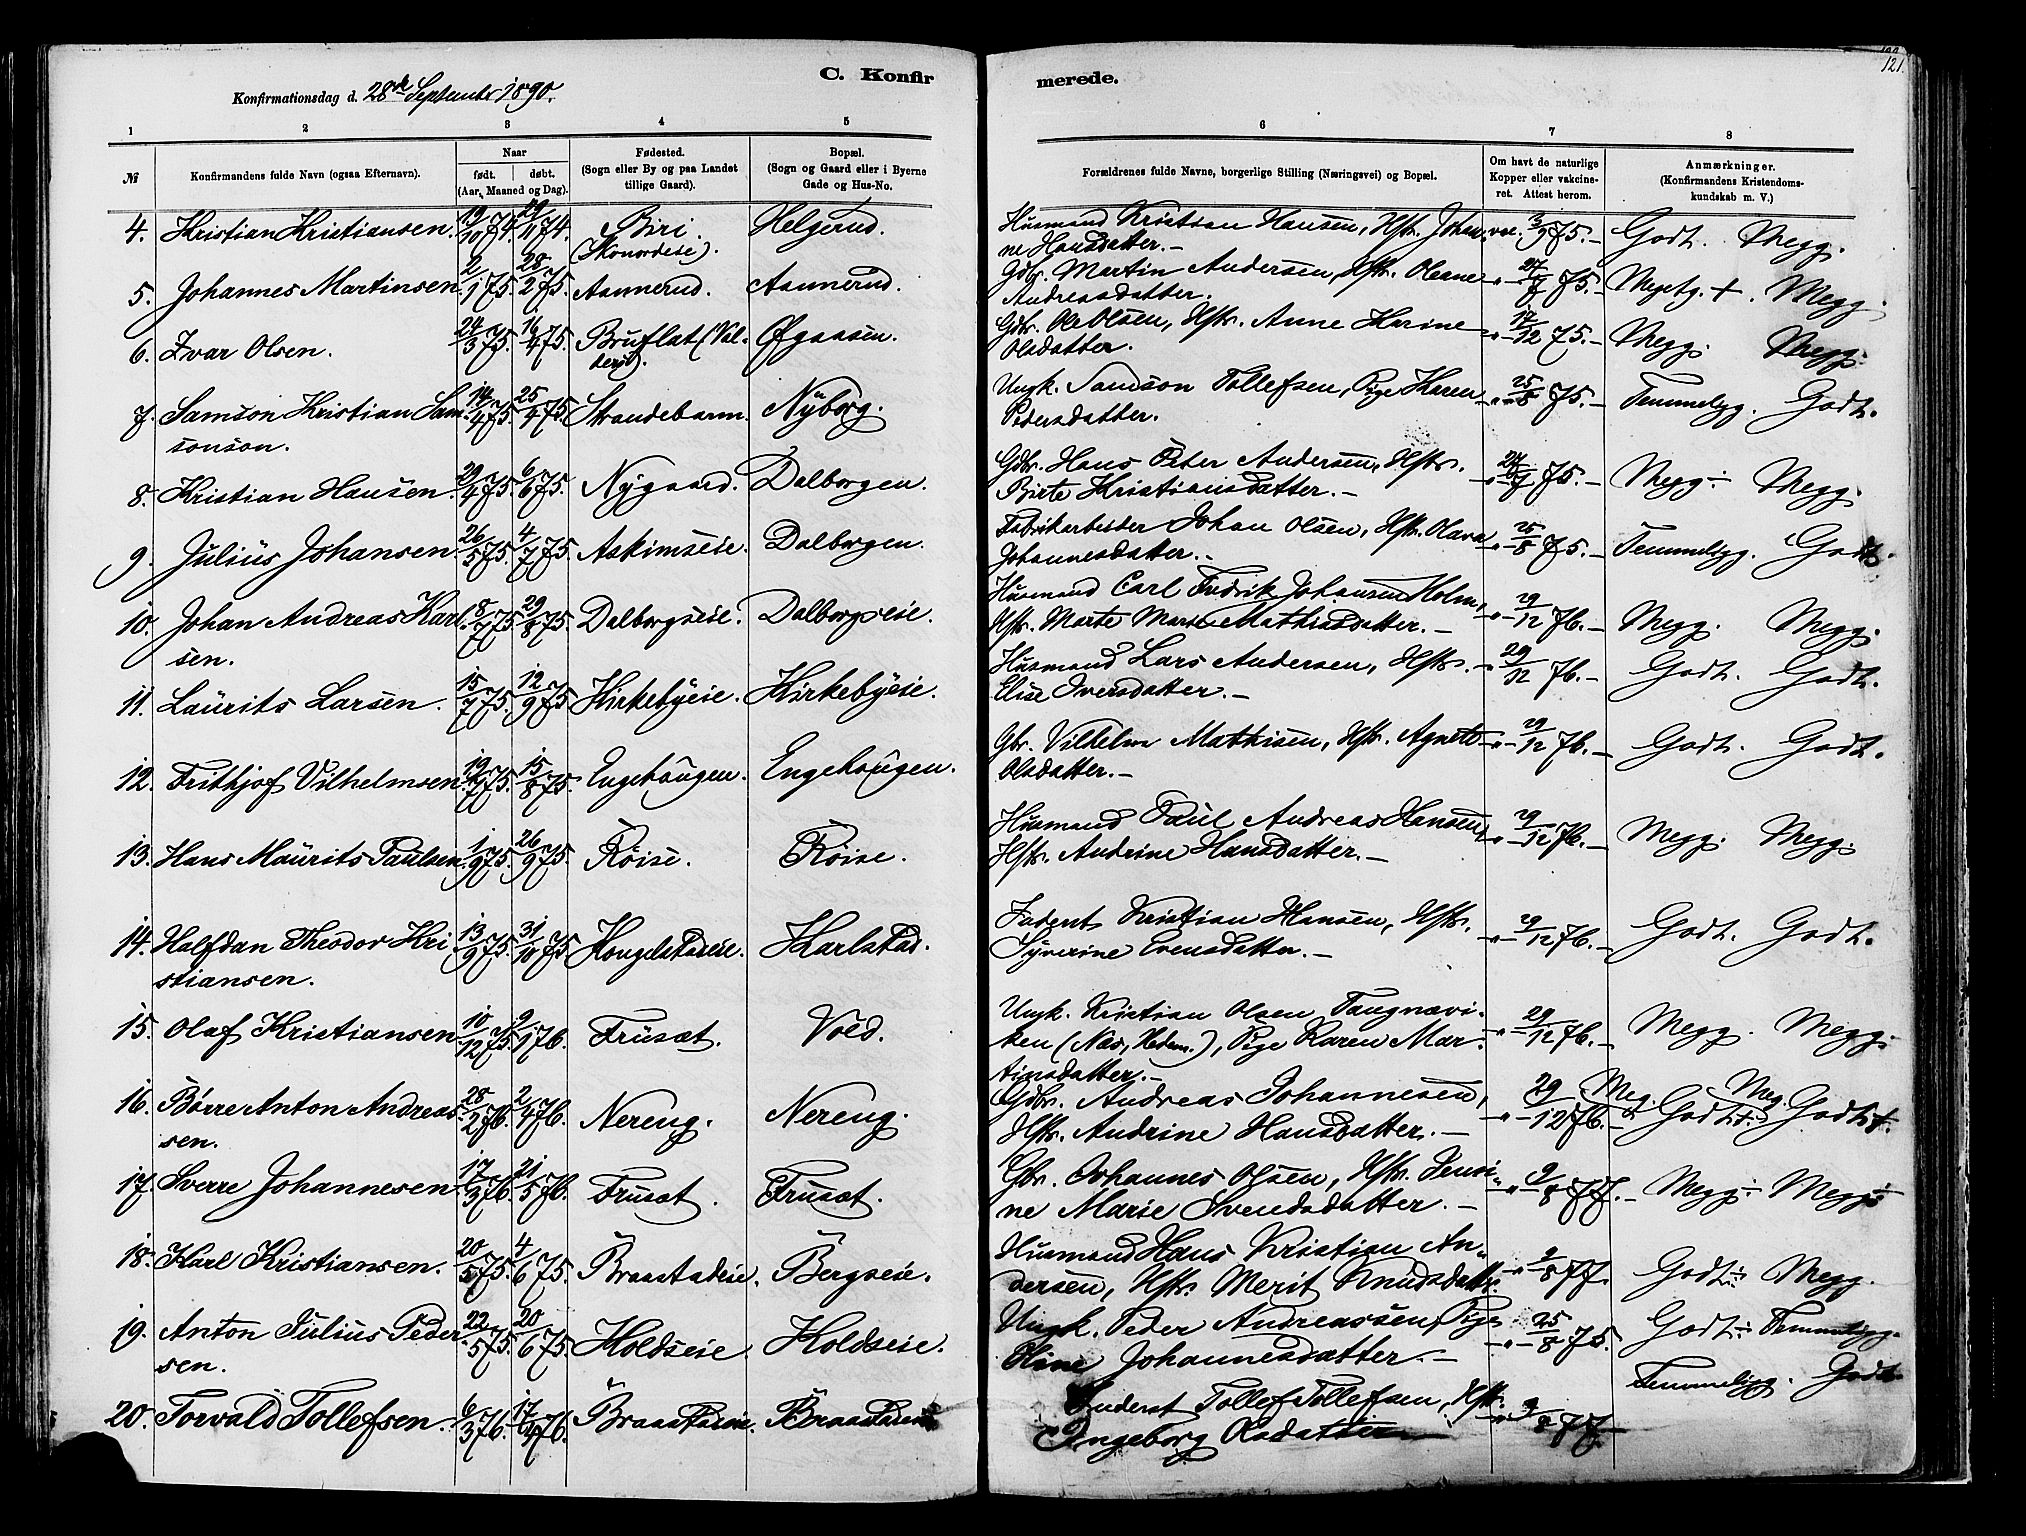 C. Konfir
Konfirmationsdag d. 28de September 1890.
1 2 3 4 5
№ Konfirmandens fulde Navn (ogsaa Efternavn). Naar født. døbt. (Aar, Maaned og Dag). Fødested. (Sogn eller By og paa Landet tillige Gaard). Bopæl. (Sogn og Gaard eller i Byerne Gade og Hus-No.
4. Kristian Kristiansen. 19/10 74. 29/11 74. Biri. Helgerud.
5. Johannes Martinsen 2/1 75. 28/2 75. Aannerud. Aannerud.
6. Ivar Olsen. 24/3 75. 16/4 75. Bruflat (Val-
ders). Øgaasen.
7. Samson Kristian Sam- 14/4 75. 25/4 75. Strandebarm. Nyborg.
sonson.
8. Kristian Hansen 29/4 75. 6/6 75. Nygaard. Dalborgen.
9. Julius Johansen 26/5 75. 4/7 75. Askimseie. Dalborgen.
10. Johan Andreas Karl- 8/7 75. 29/8 75. Dalborgseie. Dalborgseie.
sen.
11. Laurits Larsen. 15/7 75. 12/9 75 Kirkebyeie. Kirkebyeie.
12. Frithjof Vilhelmsen 19/7 75. 15/8 75. Engehaugen. Engehaugen.
13. Hans Maurits Paulsen 1/9 75. 26/9 75. Røise. Røise.
14. Halfdan Theodor Kri- 13/9 75. 31/10 75 Kongelstadeie. Karlstad.
stiansen.
15. Olaf Kristiansen 10/12 75. 2/1 76. Frusæt. Vold.
16. Børre Anton Andreas- 28/2 76. 2/4 76. Nereng. Nereng.
sen.
17. Sverre Johannesen 17/3 76. 21/5 76. Frusæt. Frusæt.
18. Karl Kristiansen. 20/5 75. 4/6 75. Braastadeie. Bergseie.
19. Anton Julius Peder- 22/5 75. 20/6 75. Holdseie. Holdseie.
sen.
20. Torvald Tollefsen. 6/3 76. 17/4 76. Braastadeie. Braastadeie
merede. 121.
6 7 8
Forældrenes fulde Navne, borgerlige Stilling (Næringsvei) og Bopæl. Om havt de naturlige Kopper eller vakcineret. Attest herom. Anmærkninger. (Konfirmandens Kristendomskundskab m. V.)
Husmand Kristian Hansen, Hstr. Johan- vac. 3/9 75.— Godt. Megg.
ne Hansdatter.—
Gdbr. Martin Andersen, Hstr. Oleane —"— 27/7 75.— Megetg. +. Megg.
Andreasdatter.
Gdbr. Ole Olsen, Hstr. Anne Karine —"— 17/12 75.— Megg. Megg.
Olsdatter.
Ungk. Samson Tollefsen, Pige Karen —"— 25/8 75.— Temmeligg. Godt.
Pedersdatter.
Gdbr. Hans Peter Andersen, Hstr. —"— 27/7 75.— Megg÷ Megg.
Birte Kristiansdatter.—
Fabrikarbeider Johan Olsen, Hstr. Olava —"— 25/8 75.— Temmeligg. Godt.
Johannesdatter.—
Husmand Carl Fredrik Johansen Holm, —"— 29/12 76.— Megg. Megg.
Hstr. Marte Marie Mathisdatter.—
Husmand Lars Andersen, Hstr. —"— 29/12 76.— Godt. Godt.
Elise Iversdatter.—
Gbr. Vilhelm Mathisen, Hstr. Agnete —"— 29/12 76.— Godt. Godt.
Olsdatter.—
Husmand Paul Andreas Hansen, —"— 29/12 76.— Megg. Megg.
Hstr. Andrine Hansdatter.—
Inderst Kristian Hansen, Hstr. —"— 29/12 76.— Godt. Godt.
Syverine Evensdatter.—
Ungk. Kristian Olsen Taugnævi- —"— 29/12 76.— Megg. Megg.
ken (Næs, Hedem.), Pige Karen Mar-
tinsdatter.—
Gdbr. Andreas Johannesen, —"— 29/12 76.— Meg. Godt÷ Meg. Godt+.
Hstr. Andrine Hansdatter.—
Gbr. Johannes Olsen, Hstr. Jensi- —"— 9/8 77.— Megg÷ Megg÷
ne Marie Svendsdatter.—
Husmand Hans Kristian An- —"— 9/8 77. Godt÷ Megg.
dersen, Hstr. Merit Knudsdatter.
Ungk. Peder Andreassen, Pige —"— 25/8 75. Godt÷ Temmeligg.
Oline Johannesdatter.—
Inderst Tollef Tollefsen, Hstr. —"— 9/8 77. Temmeligg. Godt.
Ingeborg Olsdatter